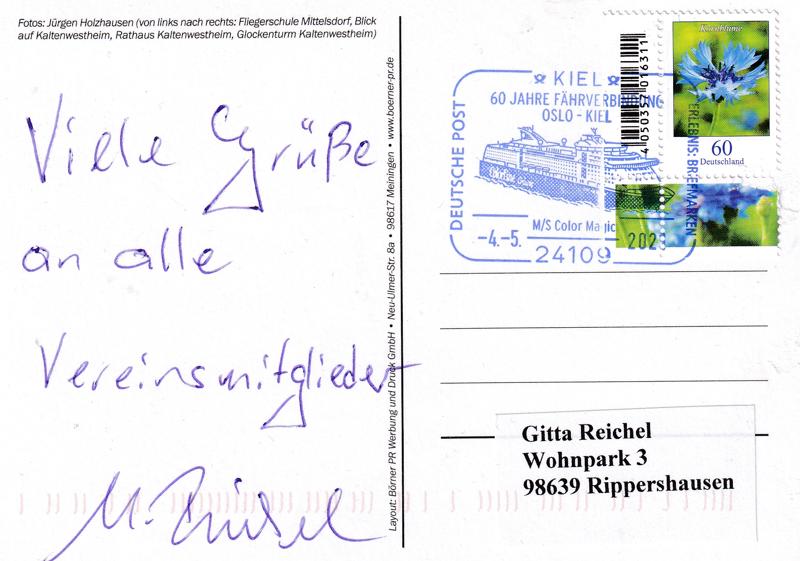 Fotos: Jürgen Holzhausen (von links nach rechts: Fliegerschule Mittelsdorf, Blick
auf Kaltenwestheim, Rathaus Kaltenwestheim, Glockenturm Kaltenwestheim)
Viele Grüße
an alle
Vereinsmitglieder
M.
Layout: Börner PR Werbung und Druck GmbH • Neu-Ulmer-Str. 8a • 98617 Meiningen • www.boerner-pr.de
KIEL
60 JAHRE FÄHRVERBINDUNG
OSLO - KIEL
DEUTSCHE POST
M/S Color Magic
-4.-5.
24109
ERLEBNIS: BRIEFMARKEN
4 050357 016311
Kornblume
60
Deutschland
202
Gitta Reichel
Wohnpark 3
98639 Rippershausen